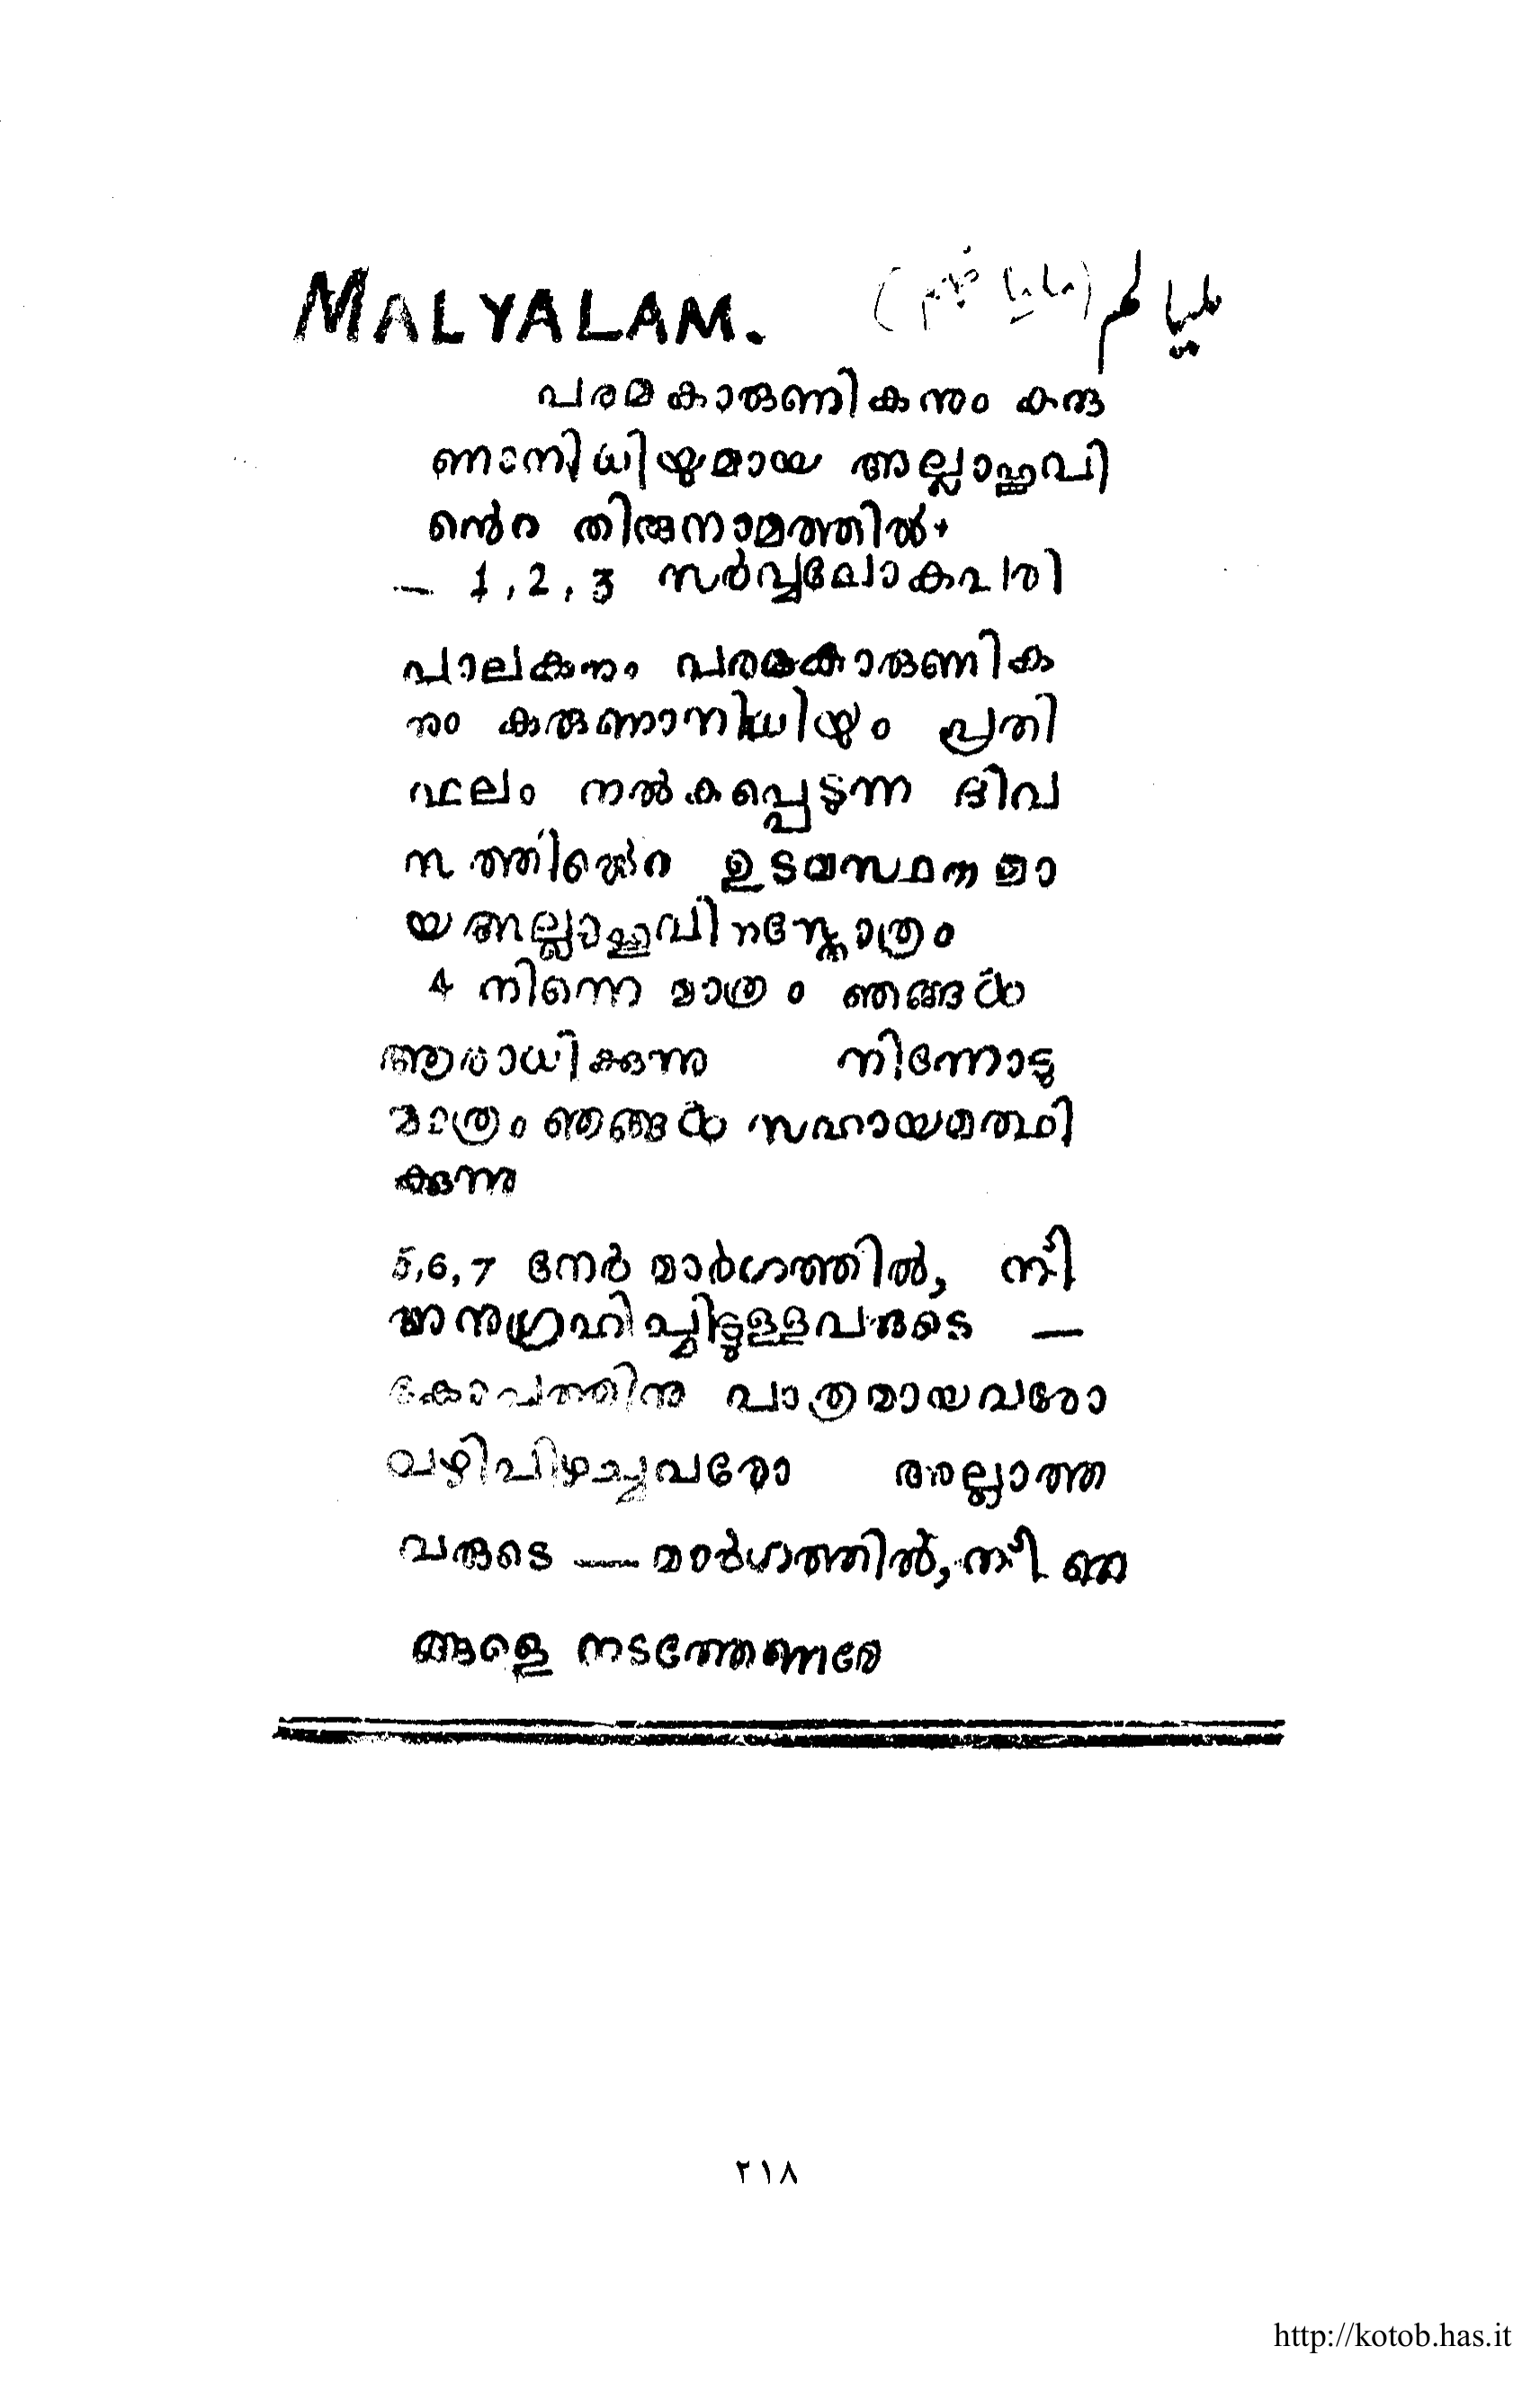 MALYALAM. مليالم (مليا لم)
പരമകാരുണികനും കരു
ണാനിധിയുമായ അല്ലാഹുവി
ൻെറ തിരുനാമത്തിൽ.
– 1, 2, 3 സർവ്വലോകപരി
പാലകനും പരമകാരുണിക
നും കരുണാനിധിയും പ്രതി
ഫലം നൽകപ്പെടുന്ന ദിവ
സത്തിൻെറ ഉടമസ്ഥനുമാ
യ അല്ലാഹുവിനസ്തോത്രം
4 നിന്നെ മാത്രം ഞങ്ങൾ
ആരാധിക്കുന്നു നിന്നോടു
മാത്രം ഞങ്ങൾ സഹായമത്ഥി
ക്കുന്നു
5,6,7 നേർ മാർഗത്തിൽ, നീ
അനുഗ്രഹിച്ചിട്ടുള്ളവരുടെ —
കോപത്തിനു പാത്രമായവരോ
വഴിപിഴച്ചവരോ അല്ലാത്ത
വരുടെ — മാർഗത്തിൽ, നീ ഞ
ങ്ങളെ നടത്തേണമേ
٢١٨
http://kotob.has.it